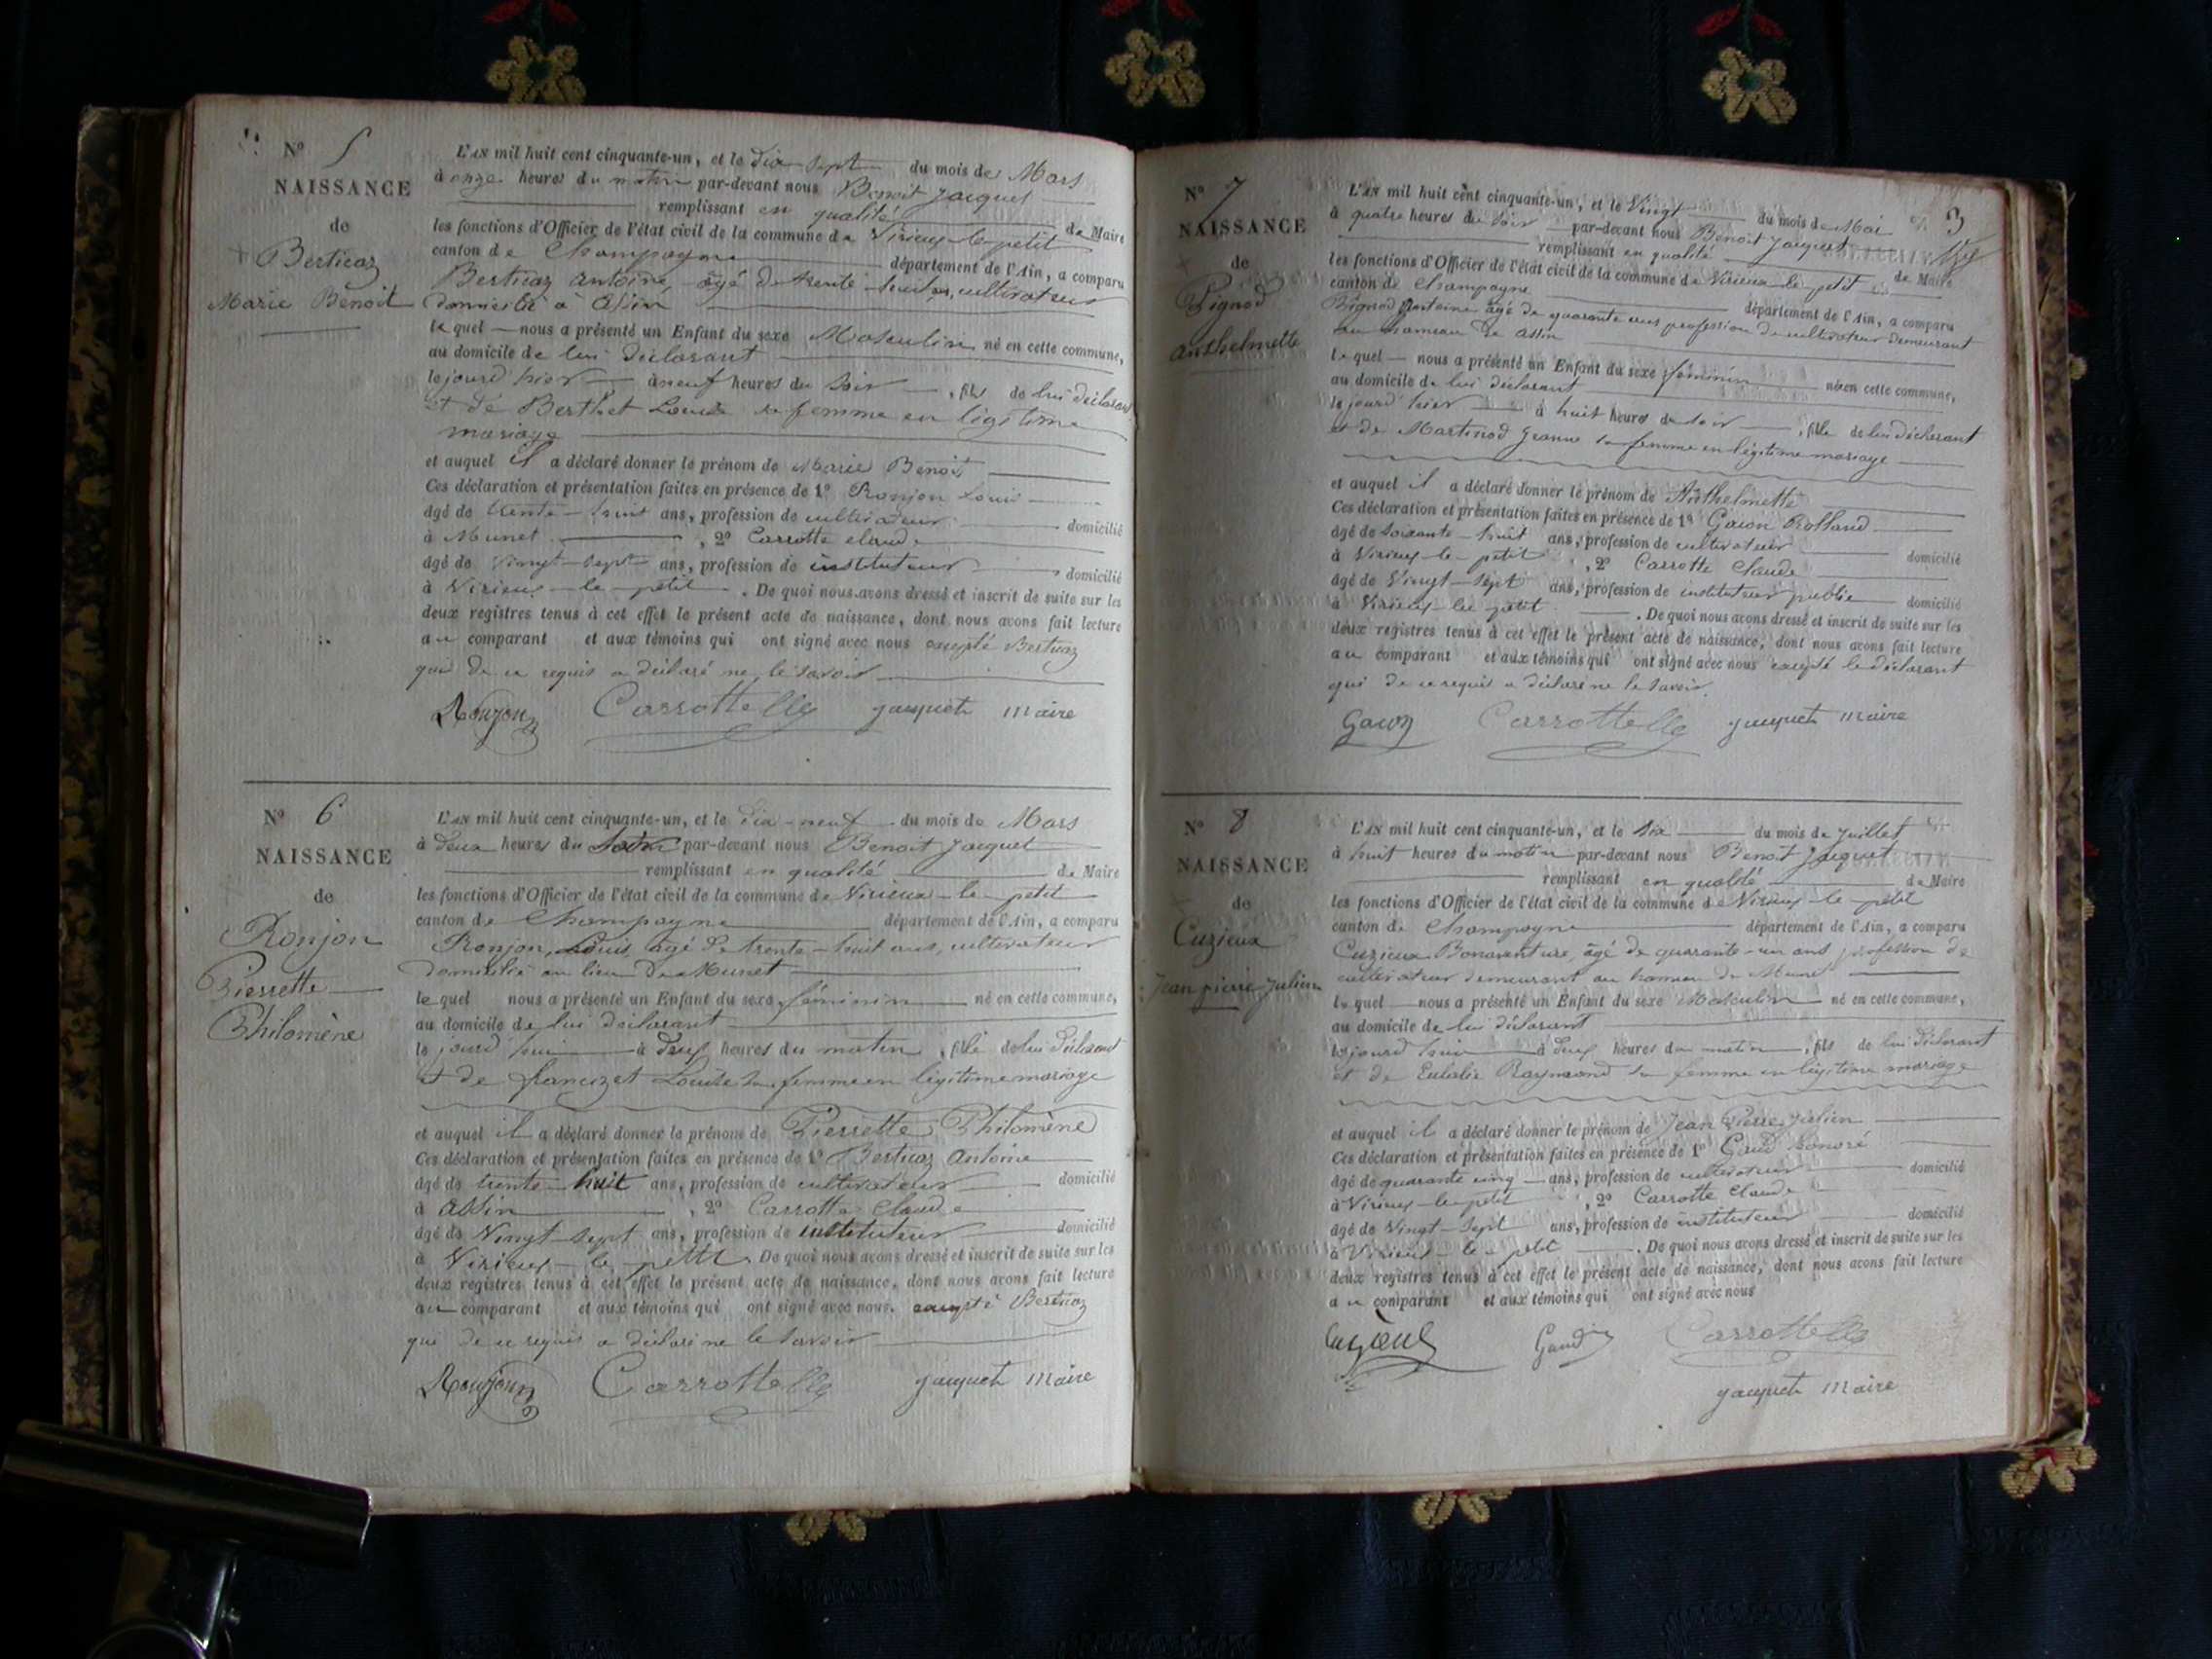 N° 5
NAISSANCE
de
Berticaz
Marie Benoit
L'AN mil huit cent cinquante-un, et le dix sept du mois de Mars
à onze heures du matin par-devant nous Benoit Jacquet
remplissant en qualité de Maire
les fonctions d'Officier de l'état civil de la commune de Virieux-le-petit
canton de Champagne département de l'Ain, a comparu
Berticaz Antoine, âgé de trente-huit ans, cultivateur
domicilié à Assin
lequel nous a présenté un Enfant du sexe Masculin né en cette commune,
au domicile de lui déclarant
le jourd'hier à neuf heures du soir, fils de lui déclarant
et de Berthet Louise sa femme en légitime
mariage
et auquel il a déclaré donner le prénom de Marie Benoit
Ces déclaration et présentation faites en présence de 1° Ronjon Louis
âgé de trente-huit ans, profession de cultivateur domicilié
à Munet, 2° Carrotte Claude
âgé de vingt-sept ans, profession de instituteur domicilié
à Virieux-le-petit. De quoi nous avons dressé et inscrit de suite sur les
deux registres tenus à cet effet le présent acte de naissance, dont nous avons fait lecture
au comparant et aux témoins qui ont signé avec nous excepté Berticaz
qui de ce requis a déclaré ne le savoir
Ronjon Carrotte Jacquet Maire
N° 6
NAISSANCE
de
Ronjon
Pierrette
Philomène
L'AN mil huit cent cinquante-un, et le dix-neuf du mois de Mars
à deux heures du par-devant nous Benoit Jacquet
remplissant en qualité de Maire
les fonctions d'Officier de l'état civil de la commune de Virieux-le-petit
canton de Champagne département de l'Ain, a comparu
Ronjon, Louis, âgé de trente-huit ans, cultivateur
domicilié au lieu de Munet
lequel nous a présenté un Enfant du sexe féminin né en cette commune,
au domicile de lui déclarant
le jourd'hui à deux heures du matin, fille de lui déclarant
et de Louise sa femme en légitime mariage
et auquel il a déclaré donner le prénom de Pierrette Philomène
Ces déclaration et présentation faites en présence de 1° Berticaz Antoine
âgé de trente-huit ans, profession de cultivateur domicilié
à Assin, 2° Carrotte Claude
âgé de Vingt-sept ans, profession de instituteur domicilié
à Virieux-le-petit. De quoi nous avons dressé et inscrit de suite sur les
deux registres tenus à cet effet le présent acte de naissance, dont nous avons fait lecture
au comparant et aux témoins qui ont signé avec nous. excepté Berticaz
qui de ce requis a déclaré ne le savoir
Ronjon Carrotte Jacquet Maire
3
N° 7
NAISSANCE
de
Pignod
Anthelmette
L'AN mil huit cent cinquante-un, et le Vingt du mois de Mai
à quatre heures du soir par-devant nous Benoit Jacquet
remplissant en qualité de Maire
les fonctions d'Officier de l'état civil de la commune de Virieux-le-petit
canton de Champagne département de l'Ain, a comparu
Pignod Antoine âgé de quarante ans profession de cultivateur demeurant
au hameau de Assin
lequel nous a présenté un Enfant du sexe féminin né en cette commune,
au domicile de lui déclarant
le jourd'hier à huit heures du soir, fille de lui déclarant
et de Martinod Jeanne sa femme en légitime mariage
et auquel il a déclaré donner le prénom de Anthelmette
Ces déclaration et présentation faites en présence de 1° Gavon Rolland
âgé de soixante-huit ans, profession de cultivateur domicilié
à Virieux-le-petit, 2° Carrotte Claude
âgé de Vingt-sept ans, profession de instituteur public domicilié
à Virieux-le-petit. De quoi nous avons dressé et inscrit de suite sur les
deux registres tenus à cet effet le présent acte de naissance, dont nous avons fait lecture
au comparant et aux témoins qui ont signé avec nous excepté le déclarant
qui de ce requis a déclaré ne le savoir.
Gavon Carrotte Jacquet Maire
N° 8
NAISSANCE
de
Cuzieux
Jean pierre Julien
L'AN mil huit cent cinquante-un, et le six du mois de Juillet
à huit heures du matin par-devant nous Benoit Jacquet
remplissant en qualité de Maire
les fonctions d'Officier de l'état civil de la commune de Virieux-le-petit
canton de Champagne département de l'Ain, a comparu
Cuzieux Bonaventure, âgé de quarante-un ans profession de
cultivateur demeurant au hameau de Munet
lequel nous a présenté un Enfant du sexe Masculin né en cette commune,
au domicile de lui déclarant
le jourd'hui à deux heures du matin, fils de lui déclarant
et de Eulalie Raymond sa femme en légitime mariage
et auquel il a déclaré donner le prénom de Jean Pierre Julien
Ces déclaration et présentation faites en présence de 1° Gaud honoré
âgé de quarante cinq ans, profession de cultivateur domicilié
à Virieux-le-petit, 2° Carrotte Claude
âgé de Vingt-sept ans, profession de instituteur domicilié
à Virieux-le-petit. De quoi nous avons dressé et inscrit de suite sur les
deux registres tenus à cet effet le présent acte de naissance, dont nous avons fait lecture
au comparant et aux témoins qui ont signé avec nous
Gaud Carrotte
Jacquet Maire